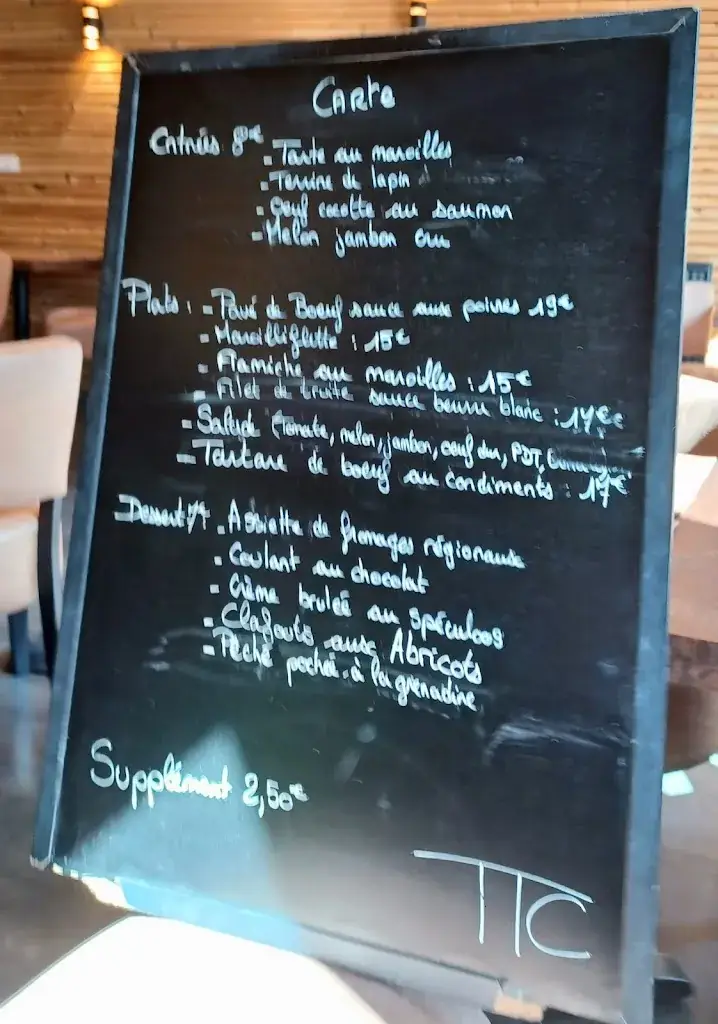 Carte
Entrées 8€
- Tarte au maroilles
- Terrine de lapin
- Oeuf cocotte au saumon
- Melon jambon cru
Plats : - Pavé de Boeuf sauce aux poivres 19€
- Maroilliflette : 15€
- Flamiche au maroilles : 15€
- Filet de truite sauce beurre blanc : 17€
- Salade (Tomate, melon, jambon, oeuf dur, PDT,
- Tartare de boeuf au condiments : 17€
Dessert 7€ - Assiette de fromages régionaux
- Coulant au chocolat
- Crème brulée au spéculoos
- Clafoutis aux Abricots
- Pêche pochée à la grenadine
Supplément 2,50€
TTC